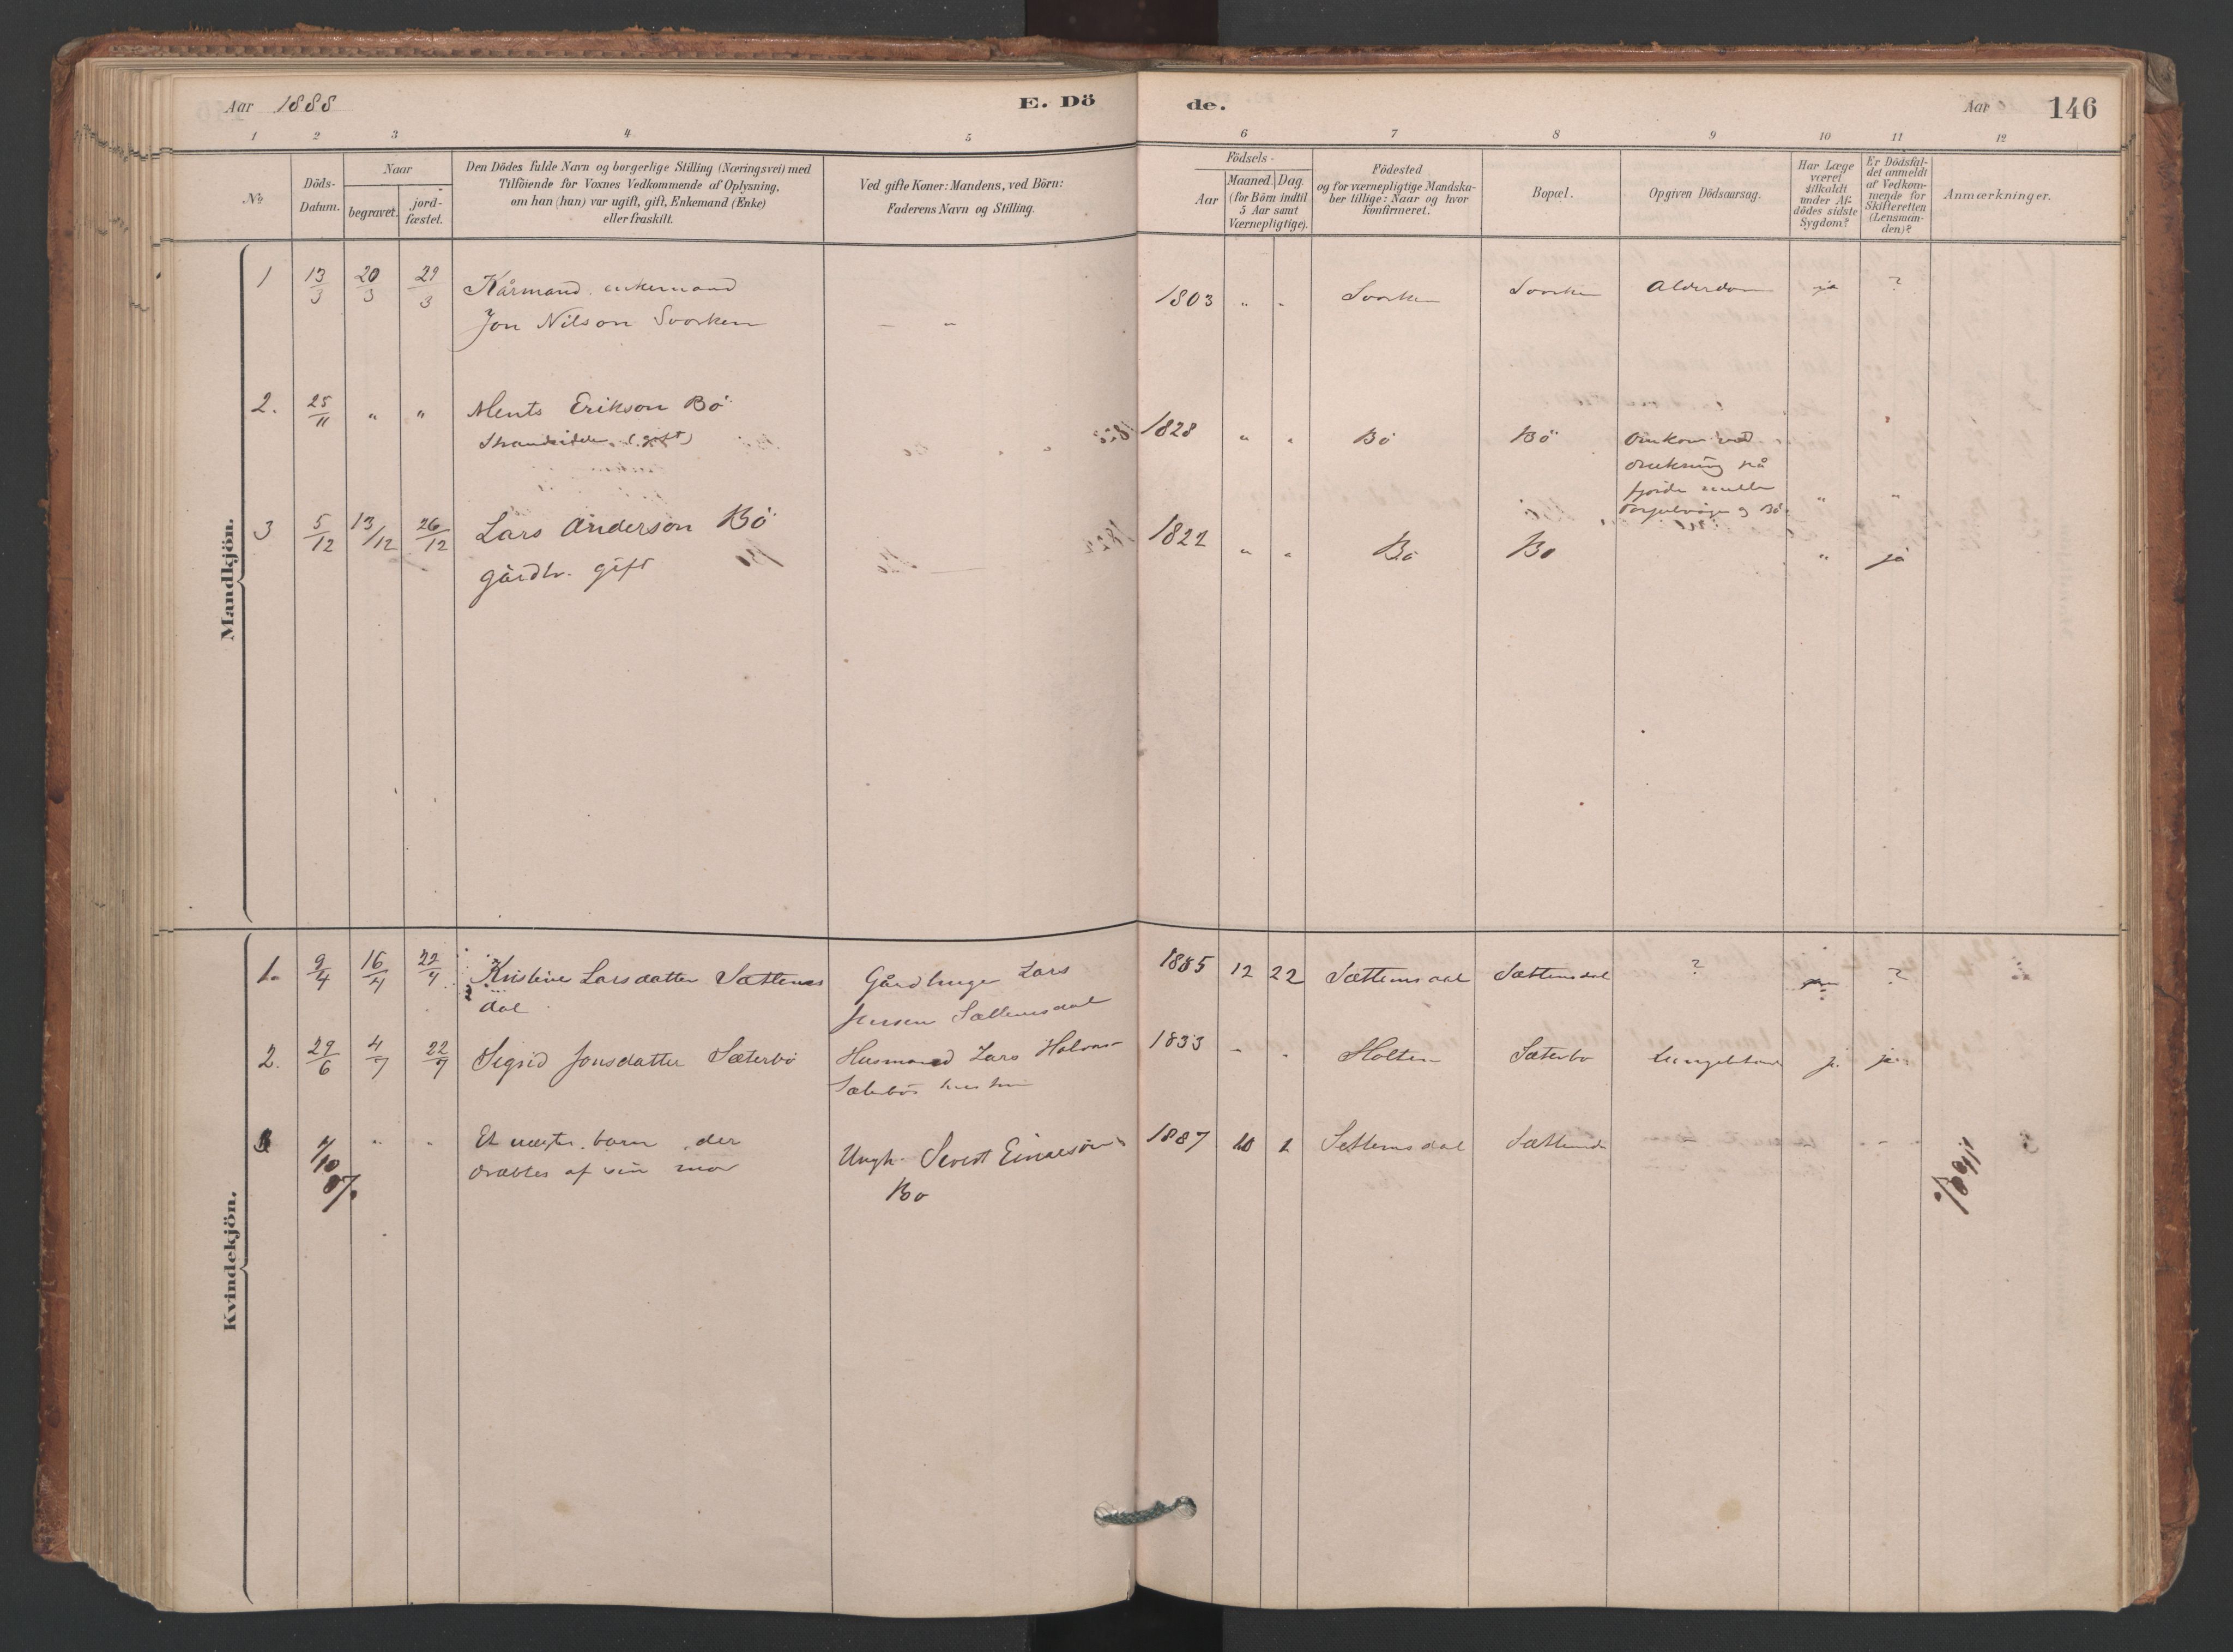 Aar 1888
E. Dö
de.
Aar
146
1 2 3 4 5 6 7 8 9 10 11 12
No
Döds-Datum.
Naar
begravet.
jord-fæstet.
Den Dödes fulde Navn og borgerlige Stilling (Næringsvei) med
Tilföiende for Voxnes Vedkommende af Oplysning,
om han (hun) var ugift, gift, Enkemand (Enke)
eller fraskilt.
Ved gifte Koner: Mandens, ved Börn:
Faderens Navn og Stilling.
Födsels-
Aar
Maaned. Dag.
(for Börn indtil
5 Aar samt
Værnepligtige).
Födested
og for værnepligtige Mandska-
ber tillige: Naar og hvor
konfirmeret.
Bopæl.
Opgiven Dödsaarsag.
Har Læge
været
tilkaldt
under Af-
dödes sidste
Sygdom?
Er Dödsfal-
det anmeldt
af Vedkom-
mende for
Skifteretten
(Lensman-
den)?
Anmærkninger.
Mandkjön.
1 13/3 20/3 29/3 Kårmand enkemand
Jon Nilson Svorken
— "
1803 " " Svorken Svorken Alderdom ja ?
2. 25/11 " " Ments Erikson Bö
Strandsidder (gift)
1828 " " Bö Bö Omkom ved
drukning på
fjorden mellem
og Bö
" "
3 5/12 13/12 26/12 Lars Anderson Bö
gårdbr. gift
—
1822 " " Bö Bö " ja
Kvindekjön.
1. 9/4 16/4 22/4 Kristine Larsdatter Sættems
dal
Gårdbruger Lars
Jensen Sættemsdal
1885 12 22 Sættemsdal Sættemsdal ? ?
2. 29/6 4/7 22/7 Sigrid Jonsdatter Sæterbö
Husmand Lars Halvors-
Sæterbös hustru
1833 " " Holten Sæterbö ja ja
3 1/10 87 " " Et uægte barn der
dræbtes af sin mor
Ungk. Sivert Einarsöns
Bö
1887 10 1 Settemsdal Sættemsdal - - -